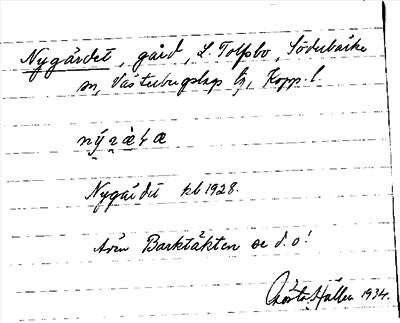 Nygårdet, gård, L. Tolfsbo, Söderbärke
sn, Västerbergslags tg, Kopp. l.
Nygårdet kb 1928.
Även Barktäkten se d. o!
Gösta Hallen 1934.